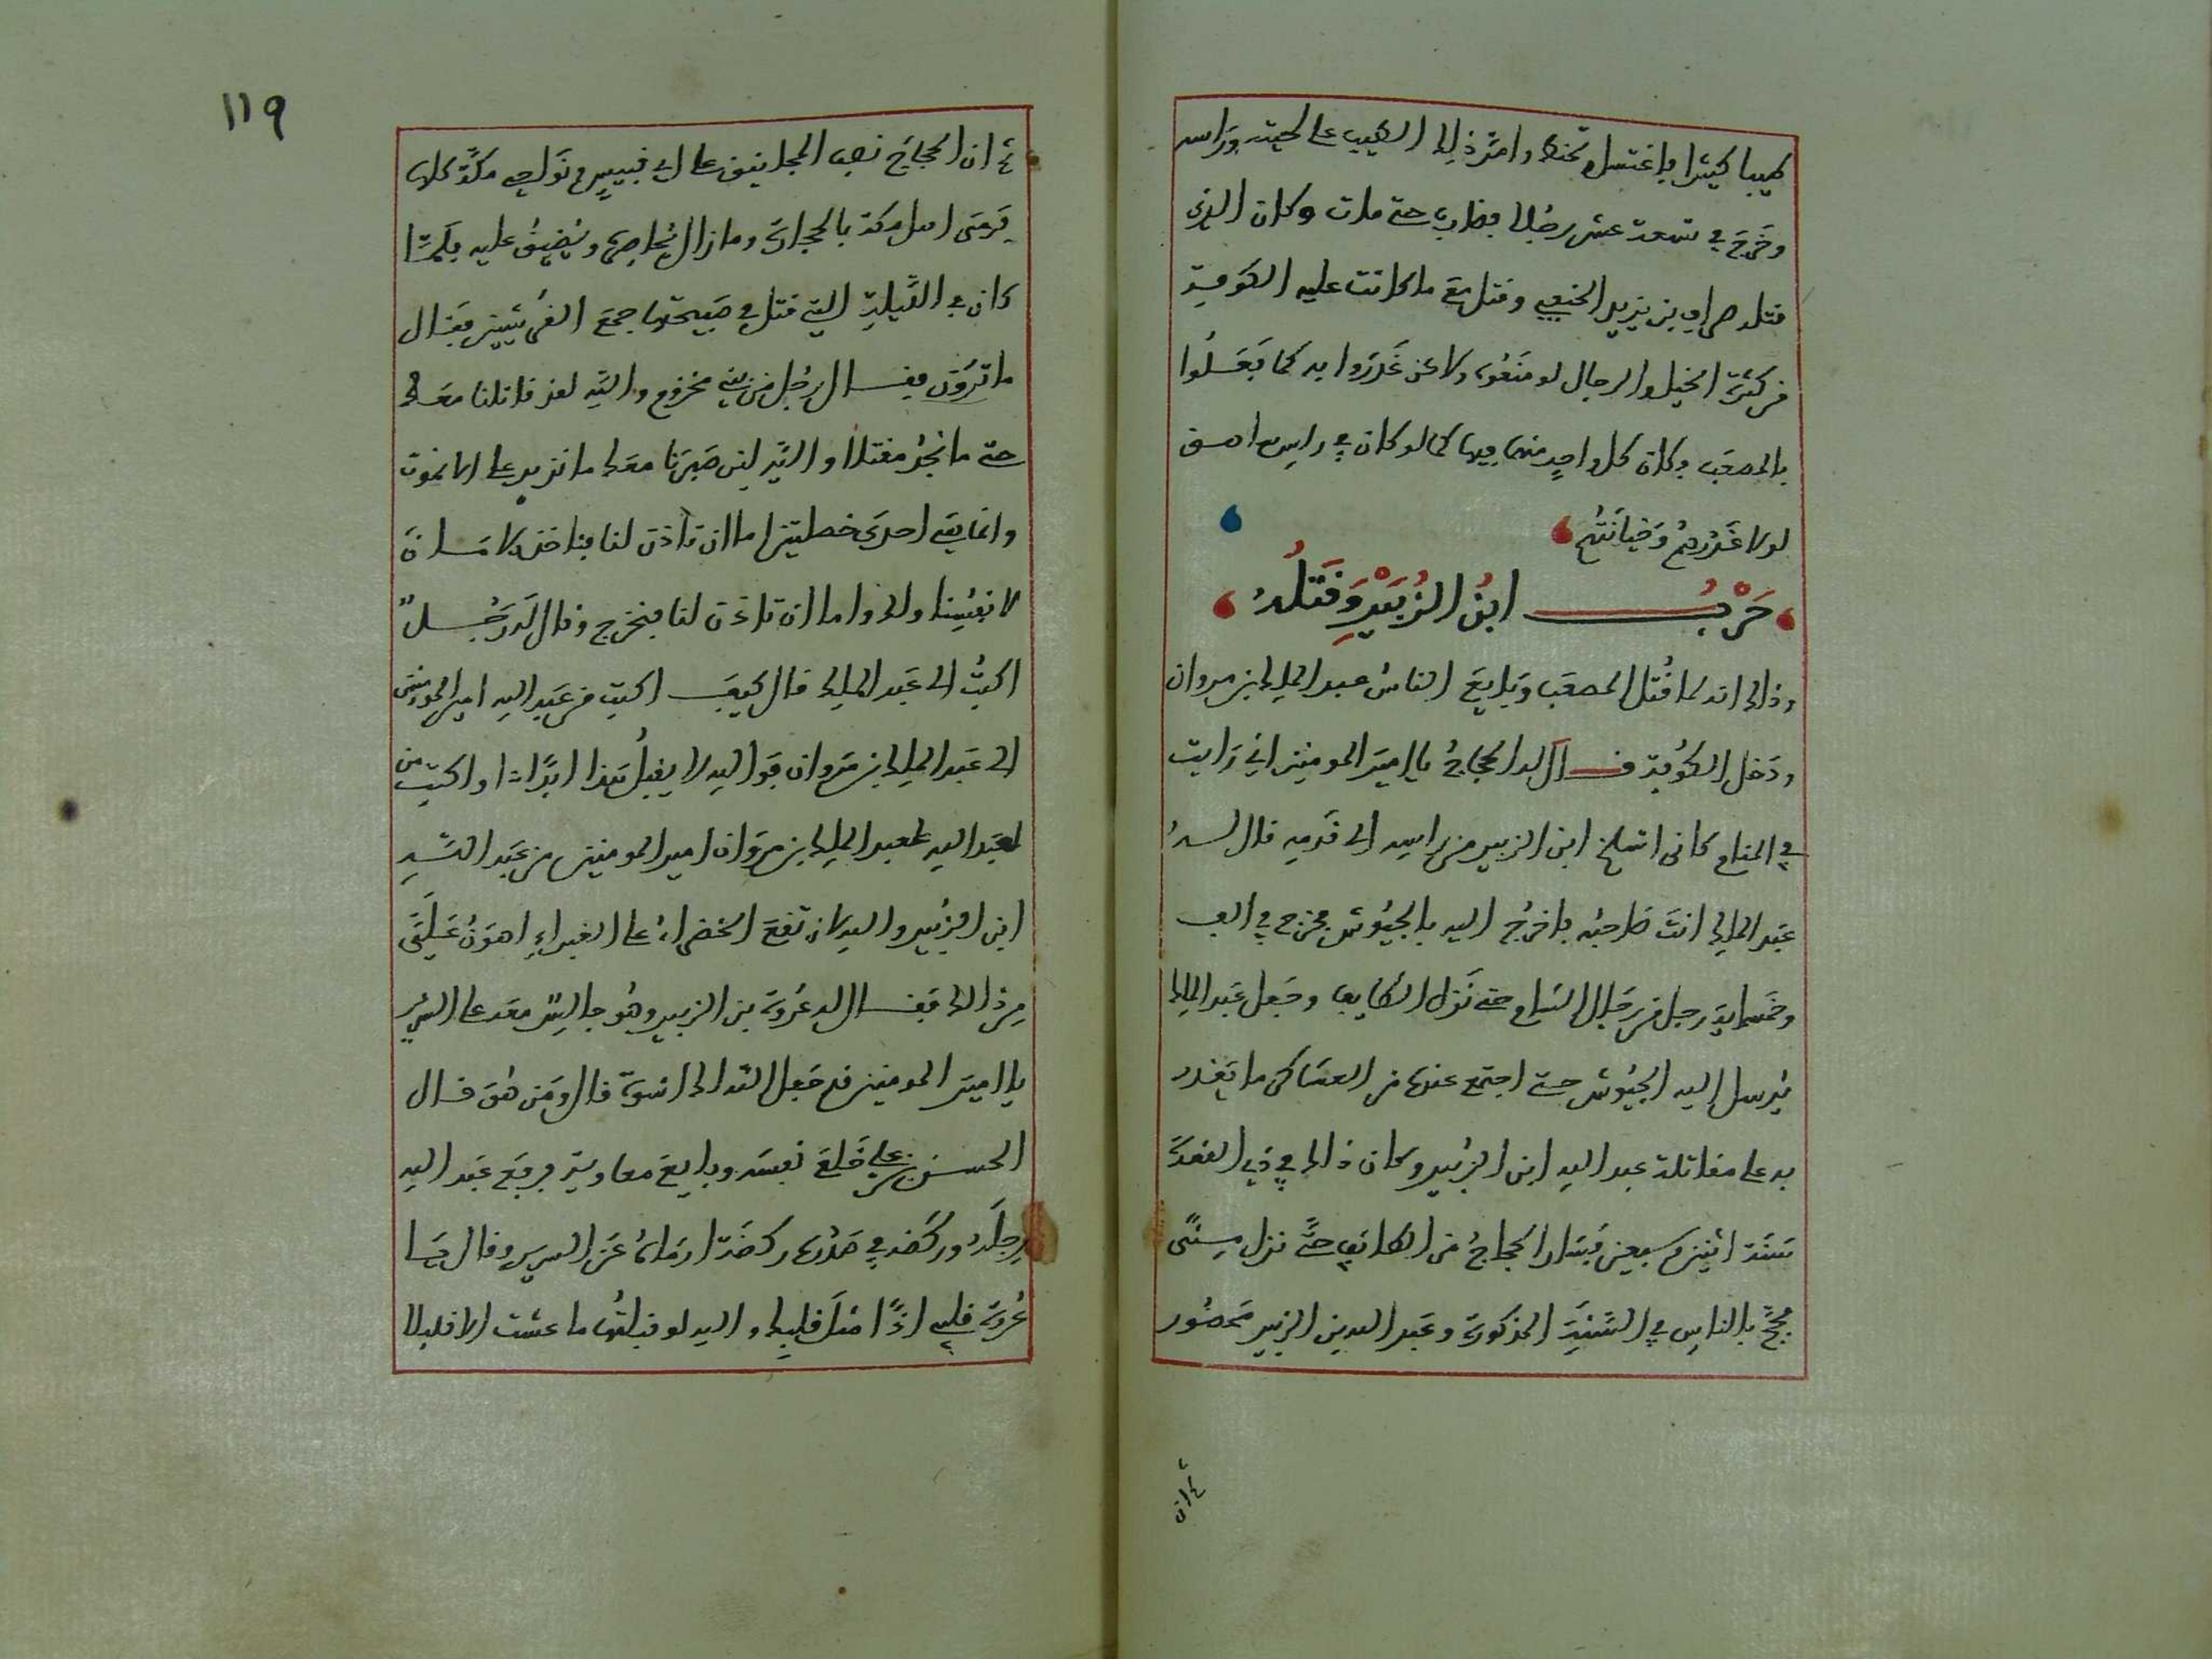 طيبا كثيرا فاغتسل وتحنط وامتر ذلك الطيب على لحيته وراسه
وخَرَجَ في تسعة عشر رجُلا فضارب حتى مات وكان الذي
قتله بن يزيد وقتل مَعَ ما كانت عليه الكوفية
من كثرة الخيل والرجال لو مَنَعُوه ولاكن غَدَرُوا به كما فَعَلُوا
بالمصعَب وكان كل واحِدٍ منهما فيها كما لو كان في راس
لولا غَدْرُهُم وَخيَانَتُهم
حَرْبُ ابنُ الزُبَيْرِ وَقَتْلُهُ
وذالك انه لما قُتل المصعَب وَبَايعَ الناسُ عبد الملك بن مروان
ودَخل الكُوفة قال له الحجاجُ يا اميرَ المومنين اني رَايت
في المنام كانى اسلخ ابن الزبير من راسِه الى قَدَمِه قال له
عَبد الملك انتَ صَاحبُه فاخرُج اليه بالجيُوش فخرج في الف
وخَمسماية رجل من رجَال الشام حتى نَزل الطايف وجَعل عَبد الملك
يُرسل إليه الجيُوش حتى اجتمع عنده من العسَاكر ما يَقدر
به على مقاتلة عبد الله ابن الزُبير وكان ذالك في ذي القعدَة
سَنَة اثنين وسبعين فسَار الحجاجُ من الطائف حتَّى نزل مِنًى
فحجَّ بالناسِ في السَّنَةِ المذكورَة وعَبد الله بن الزبير مَحصُور
ثم ان
١١٩
ثم ان الحجاجَ نصبَ المجانيق على ابي قبيسٍ ونَواحِي مكَّة كلها
يَرمى اهل مكة بالحجارة وما زال يُحاصِرُه ويُضيِّقُ عليه فلمَّا
كان في اللَّيلة التي قتل في صَبيحتها جمعَ القُرَشيّين فقال
ما تَرَوْن فقال رجُل من بني مخزوم واللّه لقد قاتلنا معَك
حتى ما نَجِدُ مقتلا واللّه لين صَبَرنا معَك ما نزيد على ان نموت
وانما هي احدى خصلتين اما ان تأذن لنا فناخذ الامَانَ
لانفُسِنا ولك واما ان تاذن لنا فنخرج وقال لَه رَجُلٌ
اكتبُ الى عَبد الملك قال كيفَ اكتب من عَبد الله امير المومنين
الى عَبد الملك بن مَروان فَوَالله لا يقبلُ هَذا ابَدًا او اكتب من
لعَبد الله لعبد الملك بن مَرْوان امير المومنين من عَبد اللّه
ابن الزُّبير والله لان تَقَعَ الخضراءُ على الغبراءِ اهوَنُ عَلَيَّ
مِن ذالك فقال له عُروَة بن الزبير وهُو جالِسٌ معَه على السَّرير
يا اميرَ المومنين قد جَعل اللّه لك اسوَة قال ومَن هُوَ قال
الحسن بن على خَلعَ نفسَه وبايعَ معاوية فرفَعَ عَبد الله
رِجلَه ورَكضه في صَدْره رَكضَةً ارمَاهُ عَن السرير وقال يَا
عُروَة قلبي اذًا مثلَ قلبِك والله لو قبلتُها ما عشت الا قليلا